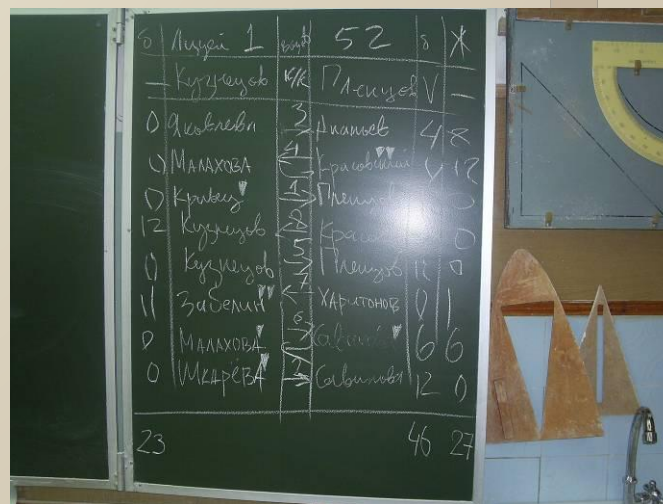 б Лицей 1 вызов 52 б Ж
— Кузнецов к/к Пленцов V —
0 Яковлева 3 Ананьев 4 8
0 Малахова 4 Красовский 0 12
0 Кривец 1 0
12 Кузнецов 8 0
0 Кузнецов 5 Пленцов 12 0
11 Забелин 7 Харитонов 0 1
0 Малахова 6 6 6
0 Шкарёва 2 Савинова 12 0
23 46 27